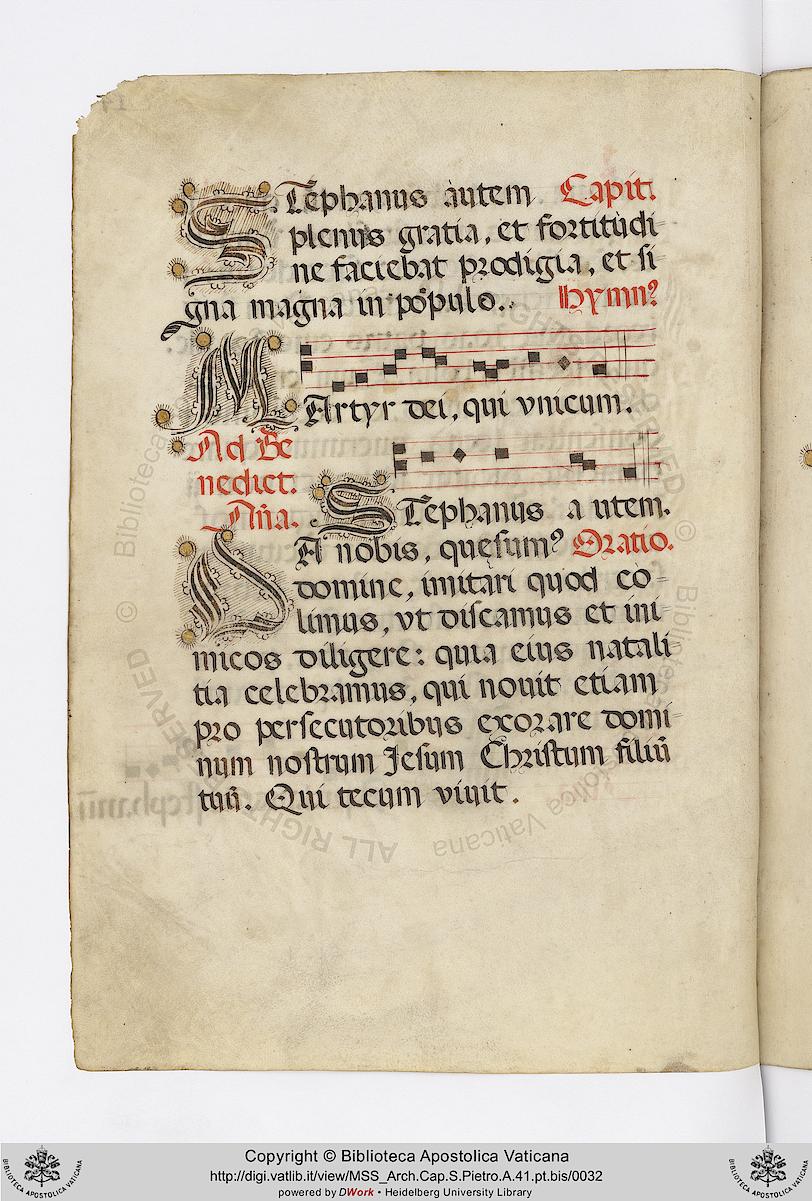 STephanus autem Capit.
plenus gratia, et fortitudi-
ne faciebat prodigia, et si-
gna magna in populo. Hymn⁹
MArtyr dei, qui vnicum.
Ad Be
nedict.
Aña. STephanus autem.
DA nobis, quęsum⁹ Oratio.
domine, imitari quod co-
limus, vt discamus et ini-
micos diligere: quia eius natali-
tia celebramus, qui nouit etiam
pro persecutoribus exorare domi-
num nostrum Jesum Christum filiū
tuū. Qui tecum viuit.
© Biblioteca Apostolica Vaticana
ALL RIGHTS RESERVED
Copyright © Biblioteca Apostolica Vaticana
http://digi.vatlib.it/view/MSS_Arch.Cap.S.Pietro.A.41.pt.bis/0032
powered by DWork • Heidelberg University Library
BIBLIOTECA APOSTOLICA VATICANA
BIBLIOTECA APOSTOLICA VATICANA